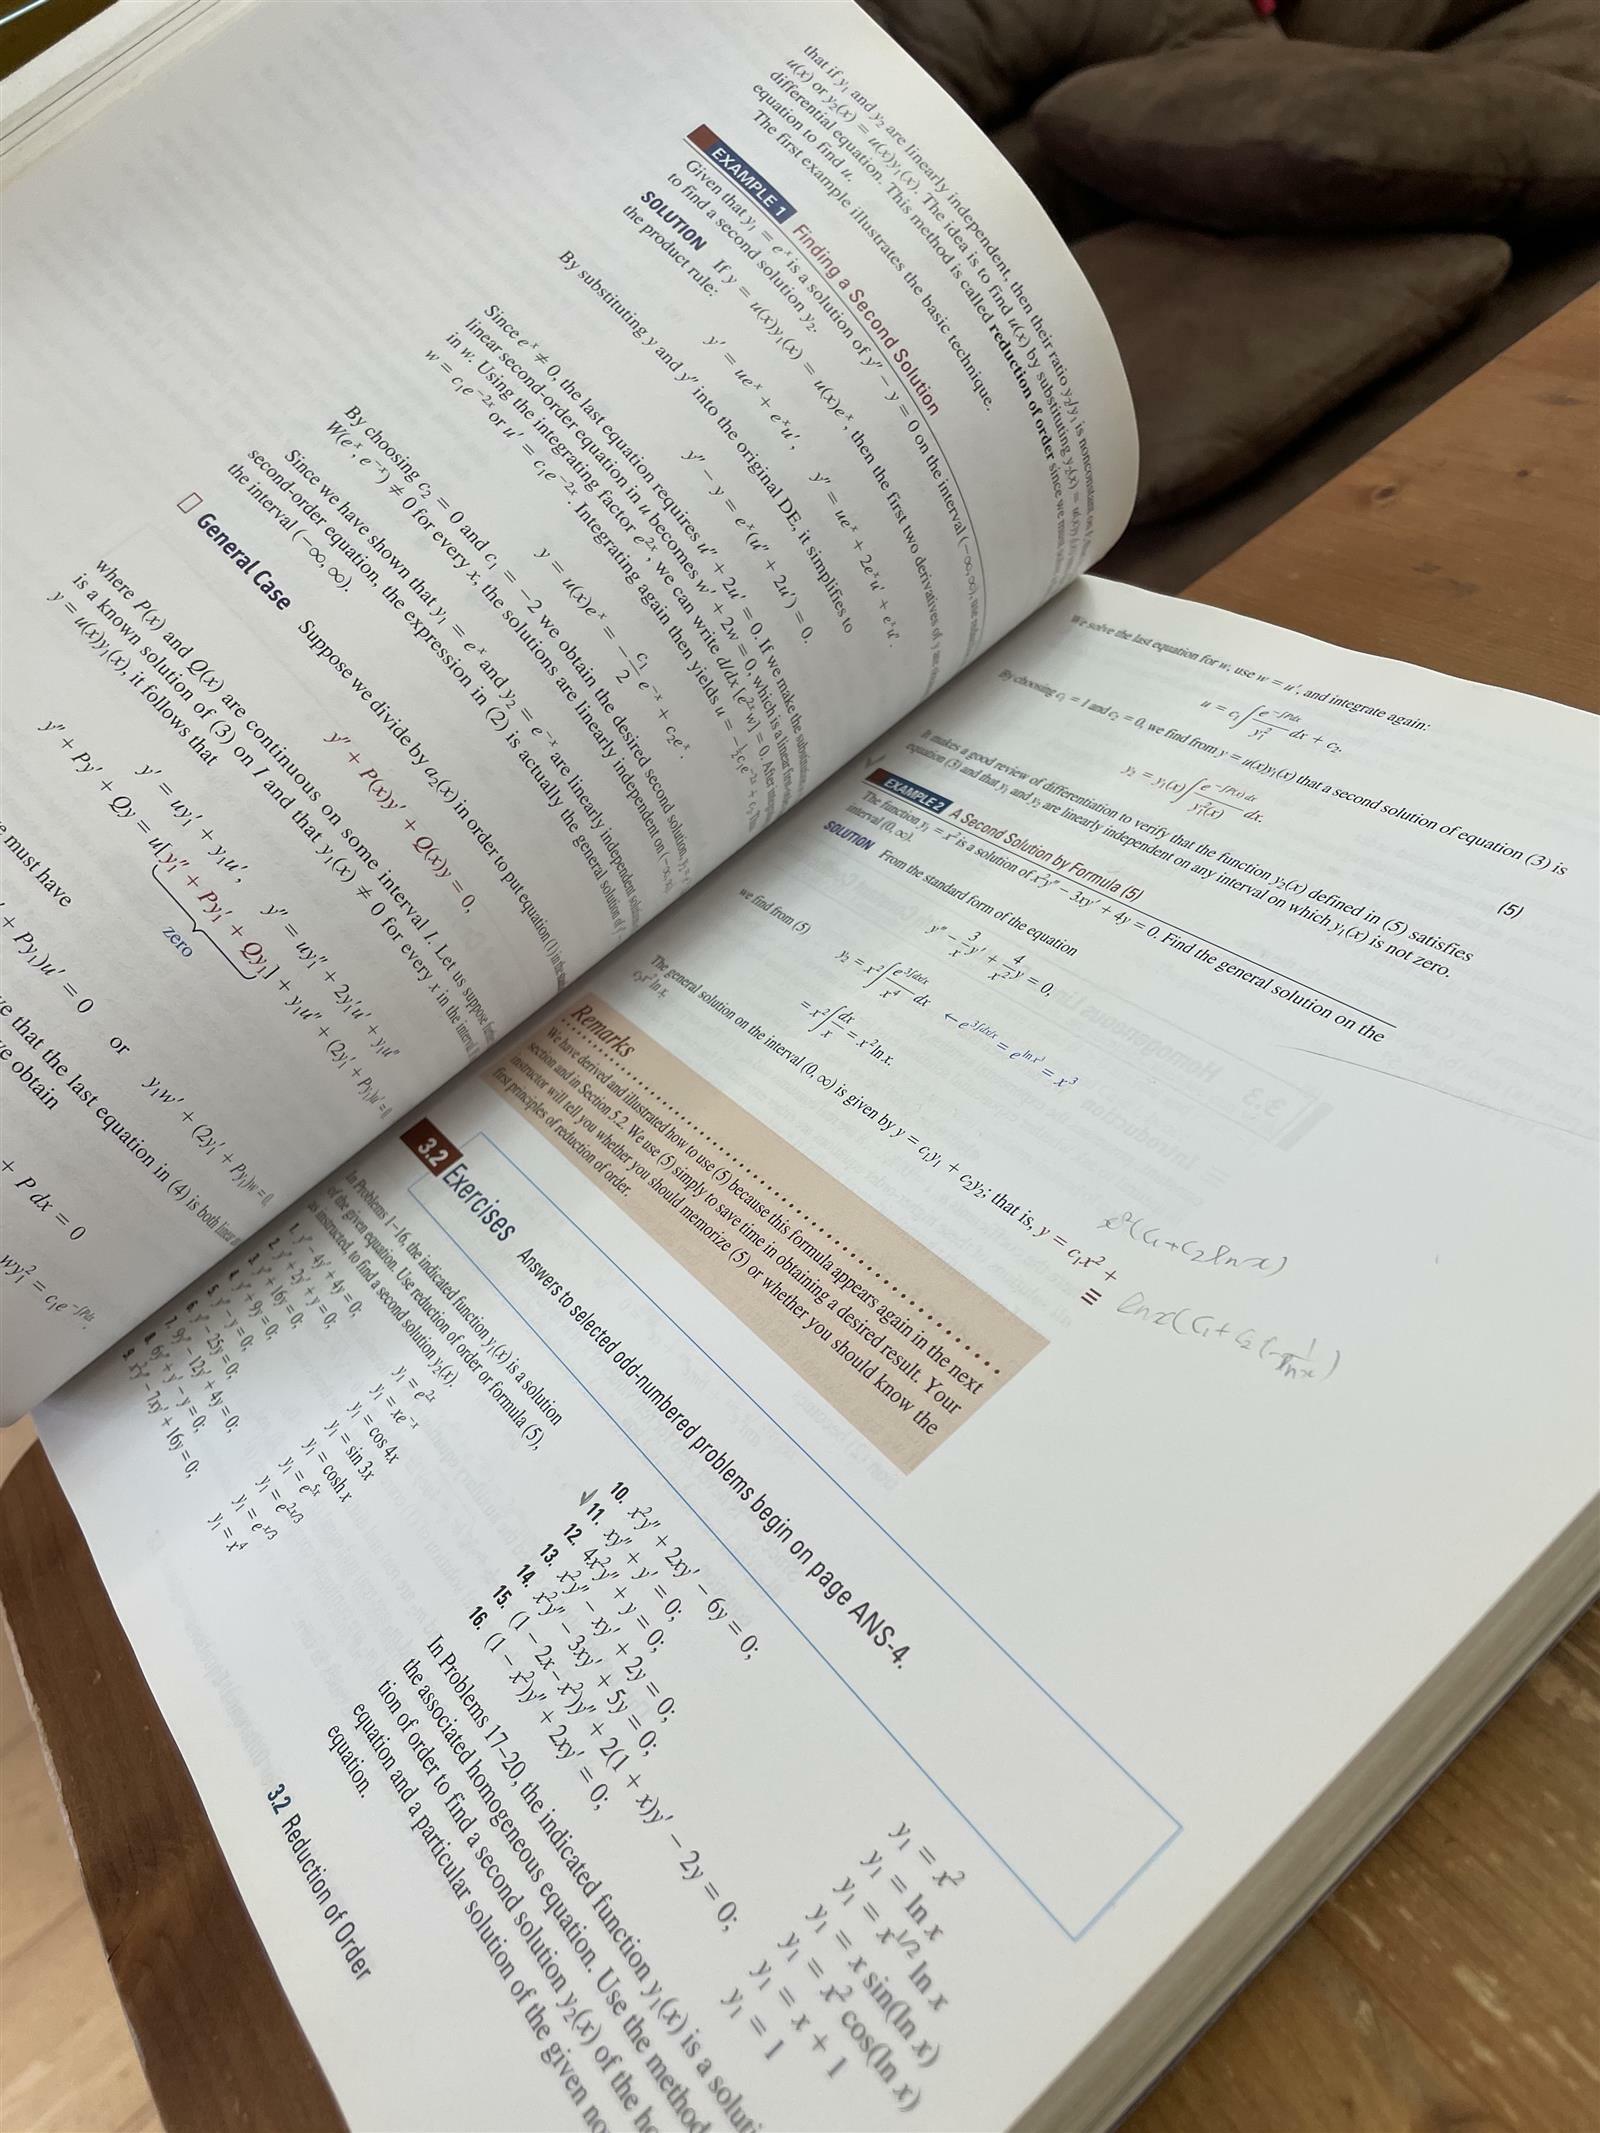 that if y₁ and y₂ are linearly independent, then their ratio y₂/y₁ is nonconstant on
u(x) or y₂(x) = u(x)y₁(x). The idea is to find u(x) by substituting y₂(x) = u(x)y₁(x)
differential equation. This method is called reduction of order since we must
equation to find u.
The first example illustrates the basic technique.
EXAMPLE 1 Finding a Second Solution
Given that y₁ = eˣ is a solution of y″ − y = 0 on the interval (−∞, ∞), use
to find a second solution y₂.
SOLUTION If y = u(x)y₁(x) = u(x)eˣ, then the first two derivatives of y are
the product rule:
y′ = ueˣ + eˣu′, y″ = ueˣ + 2eˣu′ + eˣu″.
By substituting y and y″ into the original DE, it simplifies to
y″ − y = eˣ(u″ + 2u′) = 0.
Since eˣ ≠ 0, the last equation requires u″ + 2u′ = 0. If we make the
linear second-order equation in u becomes w′ + 2w = 0, which is a linear
in w. Using the integrating factor e²ˣ, we can write d/dx [e²ˣw] = 0. After
w = c₁e⁻²ˣ or u′ = c₁e⁻²ˣ. Integrating again then yields u = −½c₁e⁻²ˣ + c₂.
y = u(x)eˣ = −(c₁/2)e⁻ˣ + c₂eˣ.
By choosing c₂ = 0 and c₁ = −2 we obtain the desired second solution,
W(eˣ, e⁻ˣ) ≠ 0 for every x, the solutions are linearly independent on (−∞, ∞).
Since we have shown that y₁ = eˣ and y₂ = e⁻ˣ are linearly independent
second-order equation, the expression in (2) is actually the general solution of
the interval (−∞, ∞).
General Case Suppose we divide by a₂(x) in order to put equation (1) in the
y″ + P(x)y′ + Q(x)y = 0,
where P(x) and Q(x) are continuous on some interval I. Let us suppose
is a known solution of (3) on I and that y₁(x) ≠ 0 for every x in the interval
y = u(x)y₁(x), it follows that
y′ = uy₁′ + y₁u′, y″ = uy₁″ + 2y₁′u′ + y₁u″
y″ + Py′ + Qy = u[y₁″ + Py₁′ + Qy₁] + y₁u″ + (2y₁′ + Py₁)u′ = 0.
zero
must have
+ Py₁)u′ = 0 or y₁w′ + (2y₁′ + Py₁)w = 0,
that the last equation in (4) is both
obtain
+ P dx = 0
wy₁² = c₁e^(−∫P dx).
We solve the last equation for w, use w = u′, and integrate again:
u = c₁ ∫ e^(−∫P dx)/y₁² dx + c₂.
By choosing c₁ = 1 and c₂ = 0, we find from y = u(x)y₁(x) that a second solution of equation (3) is
y₂ = y₁(x) ∫ e^(−∫P(x) dx)/y₁²(x) dx. (5)
It makes a good review of differentiation to verify that the function y₂(x) defined in (5) satisfies
equation (3) and that y₁ and y₂ are linearly independent on any interval on which y₁(x) is not zero.
EXAMPLE 2 A Second Solution by Formula (5)
The function y₁ = x² is a solution of x²y″ − 3xy′ + 4y = 0. Find the general solution on the
interval (0, ∞).
SOLUTION From the standard form of the equation
y″ − (3/x)y′ + (4/x²)y = 0,
we find from (5)
y₂ = x² ∫ e^(3∫dx/x)/x⁴ dx ← e^(3∫dx/x) = e^(ln x³) = x³
= x² ∫ dx/x = x² ln x.
The general solution on the interval (0, ∞) is given by y = c₁y₁ + c₂y₂; that is, y = c₁x² +
c₂x² ln x. ≡
x²(C₁ + C₂ ln x)
ln x (C₁ + C₂ (−1/ln x)
Remarks
We have derived and illustrated how to use (5) because this formula appears again in the next
section and in Section 5.2. We use (5) simply to save time in obtaining a desired result. Your
instructor will tell you whether you should memorize (5) or whether you should know the
first principles of reduction of order.
3.2 Exercises Answers to selected odd-numbered problems begin on page ANS-4.
In Problems 1–16, the indicated function y₁(x) is a solution
of the given equation. Use reduction of order or formula (5),
as instructed, to find a second solution y₂(x).
1. y″ − 4y′ + 4y = 0; y₁ = e²ˣ
2. y″ + 2y′ + y = 0; y₁ = xe⁻ˣ
3. y″ + 16y = 0; y₁ = cos 4x
4. y″ + 9y = 0; y₁ = sin 3x
5. y″ − y = 0; y₁ = cosh x
6. y″ − 25y = 0; y₁ = e⁵ˣ
7. 9y″ − 12y′ + 4y = 0; y₁ = e^(2x/3)
8. 6y″ + y′ − y = 0; y₁ = e^(x/3)
9. x²y″ − 7xy′ + 16y = 0; y₁ = x⁴
10. x²y″ + 2xy′ − 6y = 0; y₁ = x²
11. xy″ + y′ = 0; y₁ = ln x
12. 4x²y″ + y = 0; y₁ = x^(1/2) ln x
13. x²y″ − xy′ + 2y = 0; y₁ = x sin(ln x)
14. x²y″ − 3xy′ + 5y = 0; y₁ = x² cos(ln x)
15. (1 − 2x − x²)y″ + 2(1 + x)y′ − 2y = 0; y₁ = x + 1
16. (1 − x²)y″ + 2xy′ = 0; y₁ = 1
In Problems 17–20, the indicated function y₁(x) is a
the associated homogeneous equation. Use the method
tion of order to find a second solution y₂(x) of the
equation and a particular solution of the given
equation.
3.2 Reduction of Order